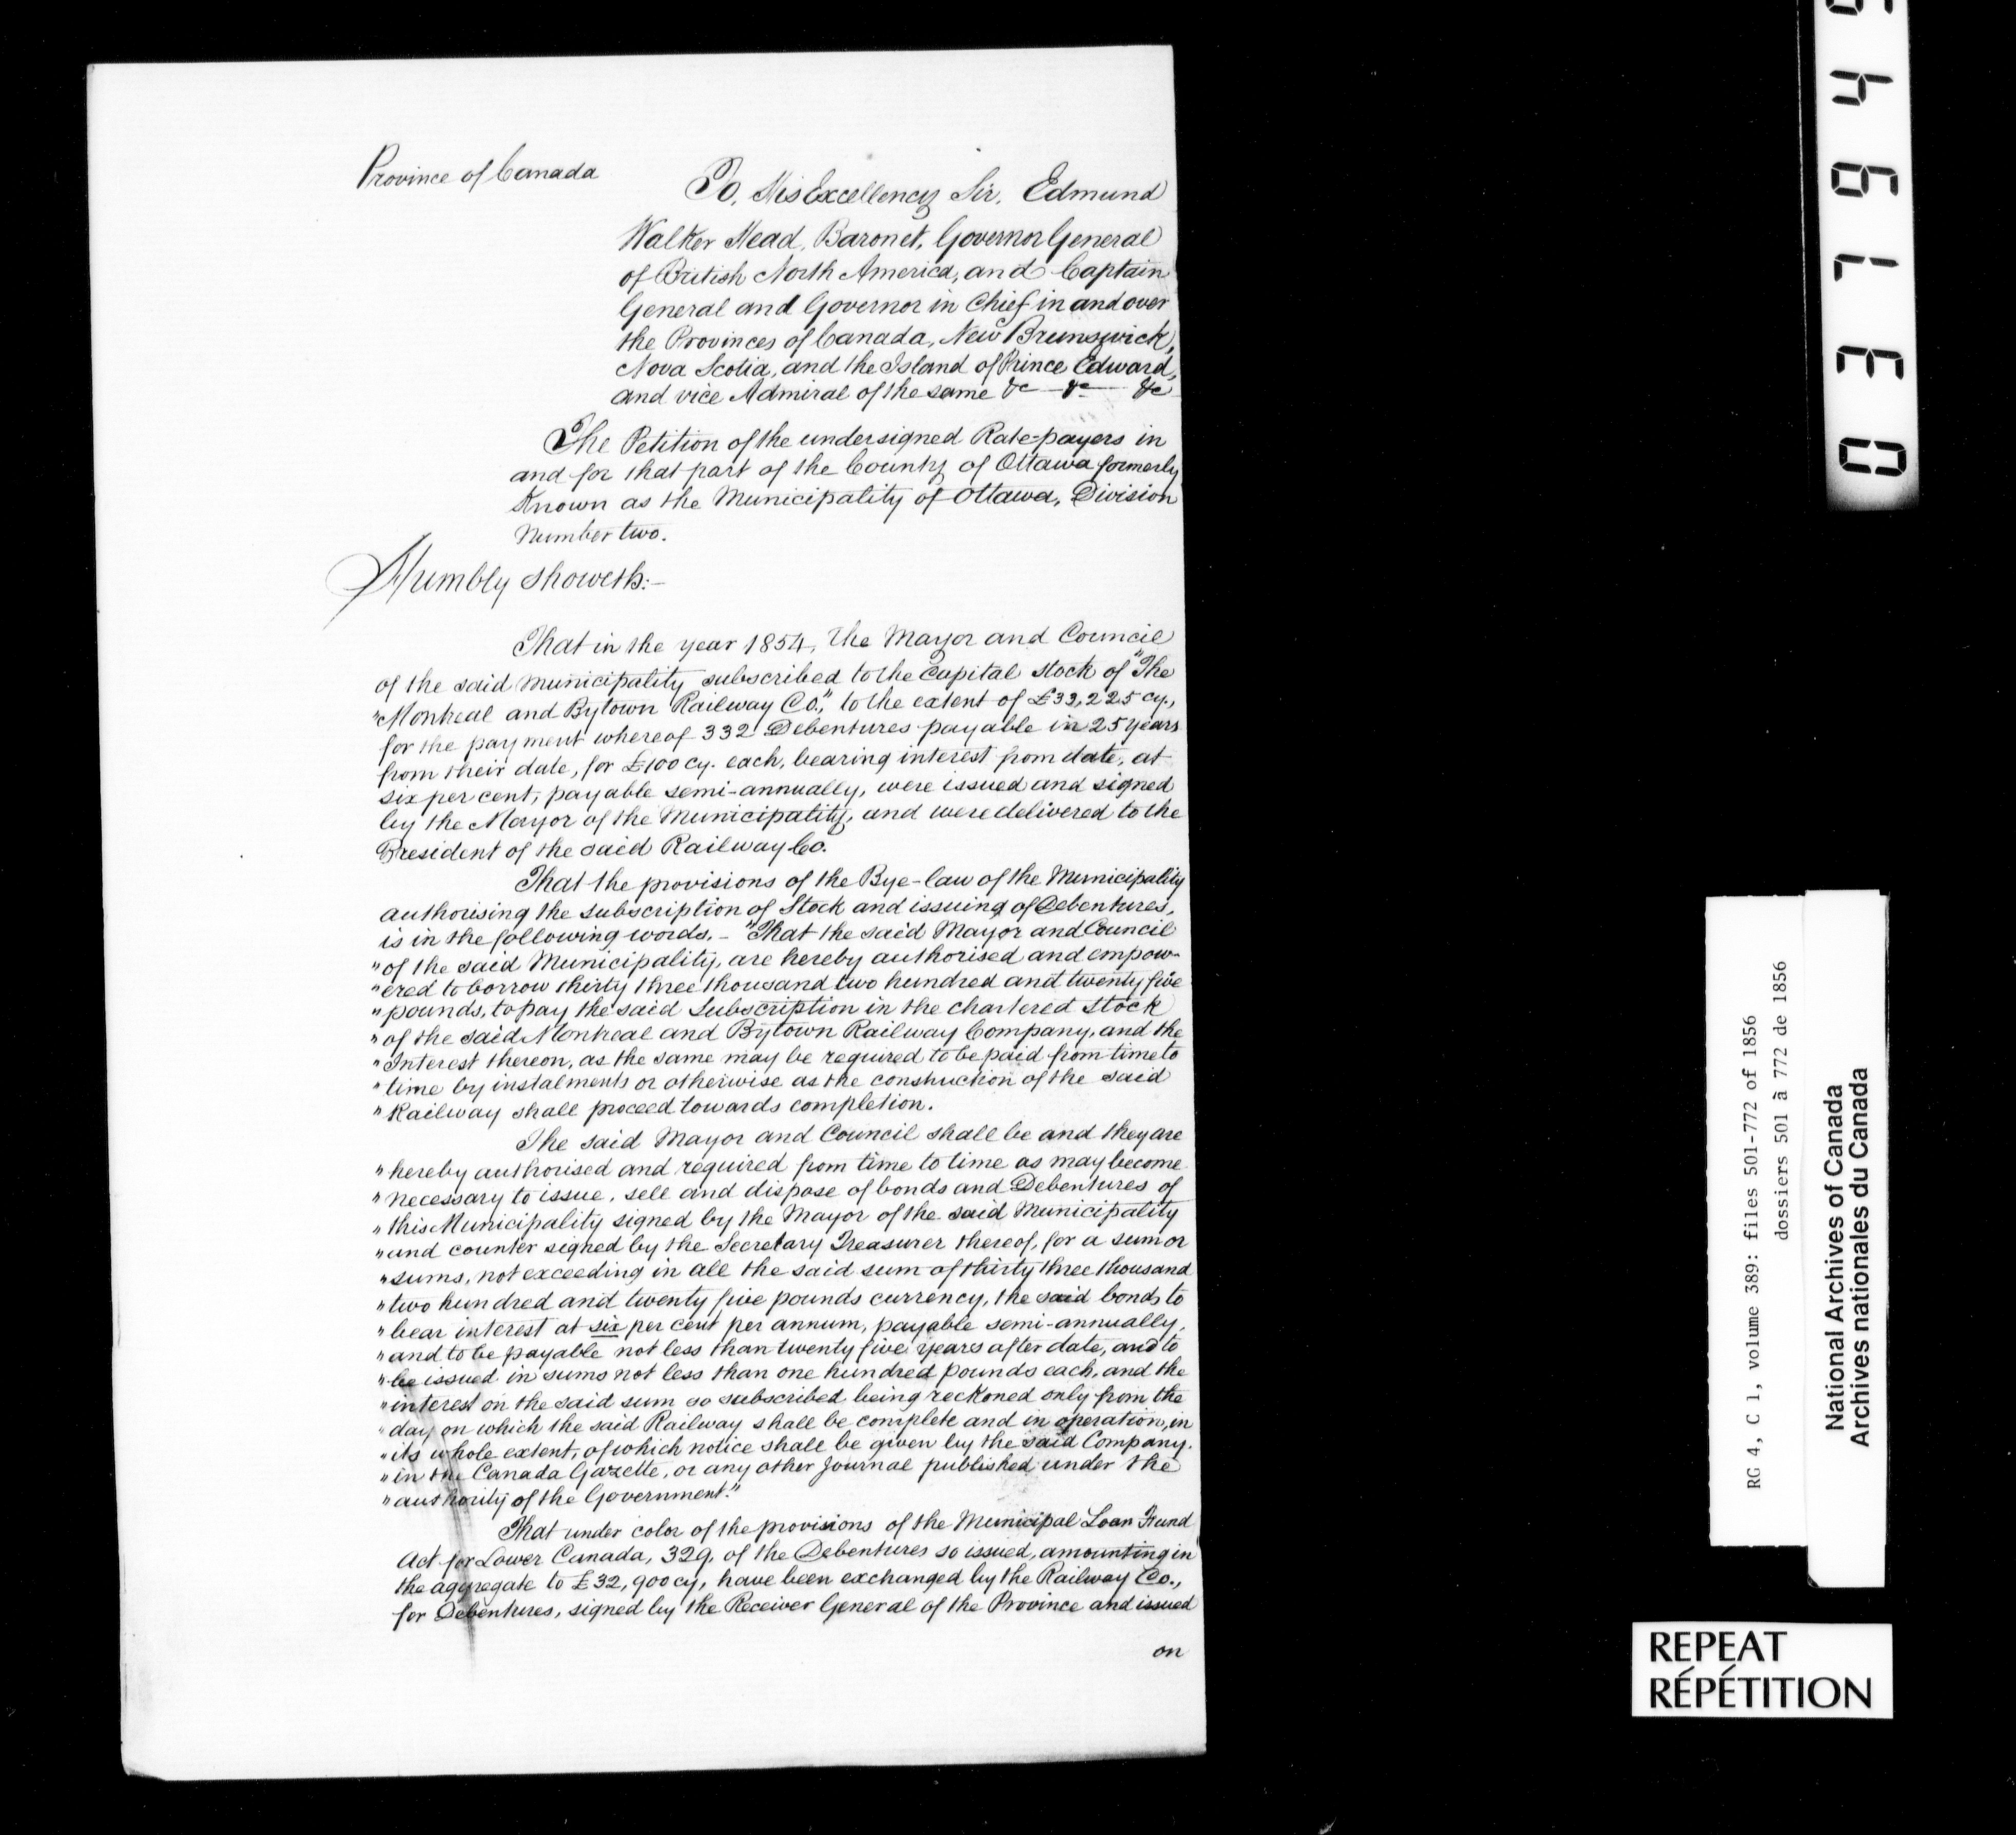 Province of Canada
To, His Excellency Sir, Edmund
Walker Head, Baronet, Governor General
of British North America, and Captain
General and Governor in Chief in and over
the Provinces of Canada, New Brunswick,
Nova Scotia, and the Island of Prince Edward,
and vice Admiral of the same &c — &c — &c
The Petition of the undersigned Rate=payers in
and for that part of the County of Ottawa formerly
Known as the Municipality of Ottawa, Division
Number two.
Humbly showeth:—
That in the year 1854, the Mayor and Council
of the said Municipality subscribed to the Capital Stock of "The
"Montreal and Bytown Railway Co.," to the extent of £33,225 cy.,
for the payment whereof 332 Debentures payable in 25 years
from their date, for £100 cy. each, bearing interest from date, at
six per cent, payable semi-annually, were issued and signed
by the Mayor of the Municipality, and were delivered to the
President of the said Railway Co.
That the provisions of the Bye-law of the Municipality
authorising the subscription of Stock and issuing of Debentures,
is in the following words. – "That the said Mayor and Council
"of the said Municipality, are hereby authorised and empow-
"ered to borrow thirty three thousand two hundred and twenty five
"pounds, to pay the said Subscription in the chartered Stock
"of the said Montreal and Bytown Railway Company, and the
"Interest thereon, as the same may be required to be paid from time to
"time by instalments or otherwise as the construction of the said
"Railway shall proceed towards completion.
The said Mayor and Council shall be and they are
"hereby authorised and required from time to time as may become
"necessary to issue, sell and dispose of bonds and Debentures of
"this Municipality signed by the Mayor of the said Municipality
"and counter signed by the Secretary Treasurer thereof, for a sum or
"sums, not exceeding in all the said sum of thirty three thousand
"two hundred and twenty five pounds currency, the said bonds to
"bear interest at six per cent per annum, payable semi-annually,
"and to be payable not less than twenty five years after date, and to
"be issued in sums not less than one hundred pounds each, and the
"interest on the said sum so subscribed being reckoned only from the
"day on which the said Railway shall be complete and in operation, in
"its whole extent, of which notice shall be given by the said Company.
"in the Canada Gazette, or any other Journal published under the
"authority of the Government."
That under color of the provisions of the Municipal Loan Fund
Act for Lower Canada, 329, of the Debentures so issued, amounting in
the aggregate to £32,900 cy, have been exchanged by the Railway Co.,
for Debentures, signed by the Receiver General of the Province and issued
on
RG 4, C 1, volume 389: files 501-772 of 1856
dossiers 501 à 772 de 1856
National Archives of Canada
Archives nationales du Canada
REPEAT
RÉPÉTITION